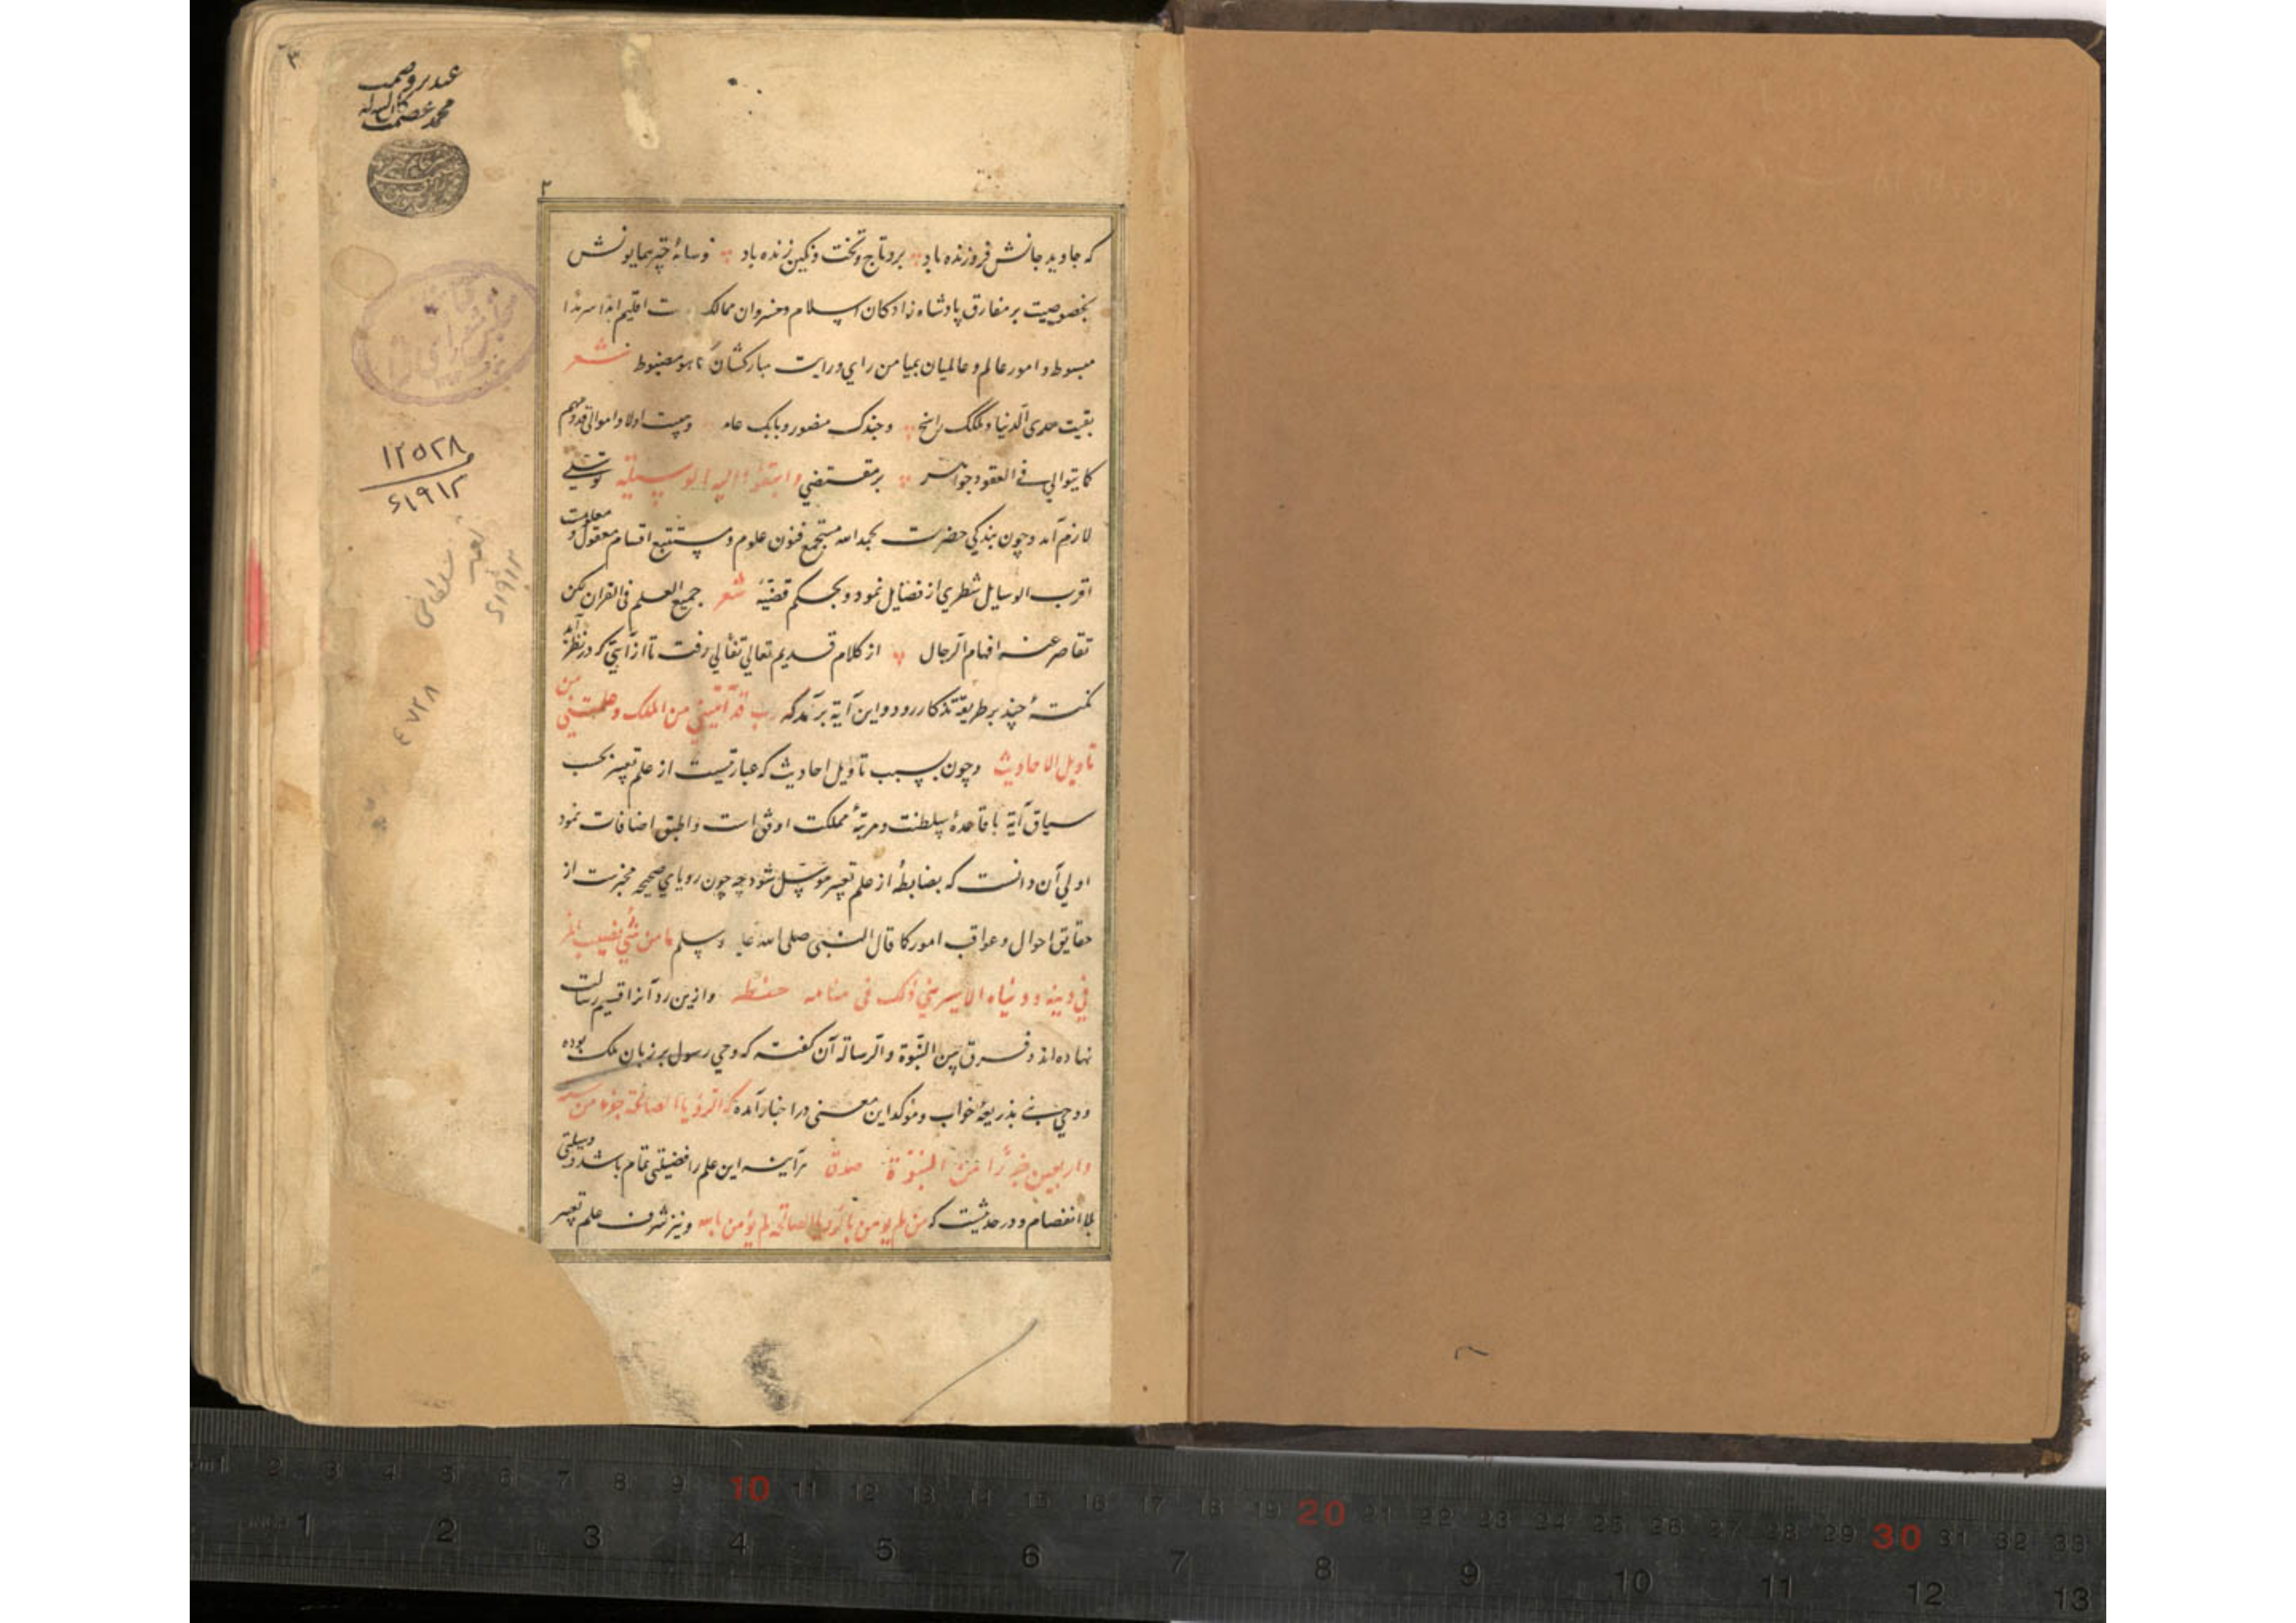 ۳
عبده
محمد عصمت الله
۲
که جاوید جانش فروزنده باد برو تاج و تخت و نگین زنده باد و سایهٔ چتر همایونش
بخصوصیت بر مفارق پادشاه زادکان اسلام و خسروان ممالک اقلیم ابدا سرمدا
مبسوط و امور عالم و عالمیان بمیامن رای و رایت مبارکشان مضبوط شعر
بقیت مدی الدنیا و ملکک راسخ وجندک منصور و بابک عامر اولاد
کما یتوالی فی العقود جواهر بر مقتضی وابتغوا الیه الوسیلة توسلی
لازم آمد و چون بندکی حضرت بحمد الله مستجمع فنون علوم و مستتبع اقسام معقول و معلومست
اقرب الوسایل شطری از فضایل نمود و بحکم قضیهٔ شعر جمیع العلم فی القران لکن
تقاصر عنه افهام الرجال از کلام قدیم تعالی تفألی رفت تا از آیتی که در نظر آید
نکتهٔ چند بر طریقهٔ تذکار رود و این آیة برآمد که رب قد آتیتنی من الملک وعلمتنی من
تاویل الاحادیث و چون بسبب تاویل احادیث که عبارتیست از علم تعبیر بحسب
سیاق آیة با قاعدهٔ سلطنت و مرتبهٔ مملکت اوفق است و الیق اضافات نمود
اولی آن دانست که بضابطهٔ از علم تعبیر موسل شود چه چون رویای صحیحه مخبرست از
حقایق احوال و عواقب امور کما قال النبی صلی الله علیه وسلم ما من شیء یصیب المرء
فی دینه و دنیاه الا یری ذلک فی منامه حفظه و ازین رو آنرا قسیم رسالت
نهاده اند و فرق بین النبوة و الرسالة آن کفته که وحی رسول بر زبان ملک بوده
و وحی نبی بذریعهٔ خواب و موکد این معنی در اخبار آمده که الرؤیا الصالحة جزء من ستة
واربعین جزءا من النبوة هرآینه این علم را فضیلتی تمام باشد و وسیلتی
بلا انفصام و در حدیثست که من لم یومن بالرؤیا الصالحة لم یؤمن بالله و نیز شرف علم تعبیر
۱۲۵۲۸
۶۱۹۱۲
تعبیر سلطانی
۶۱۹۱۲
۴۷۲۸